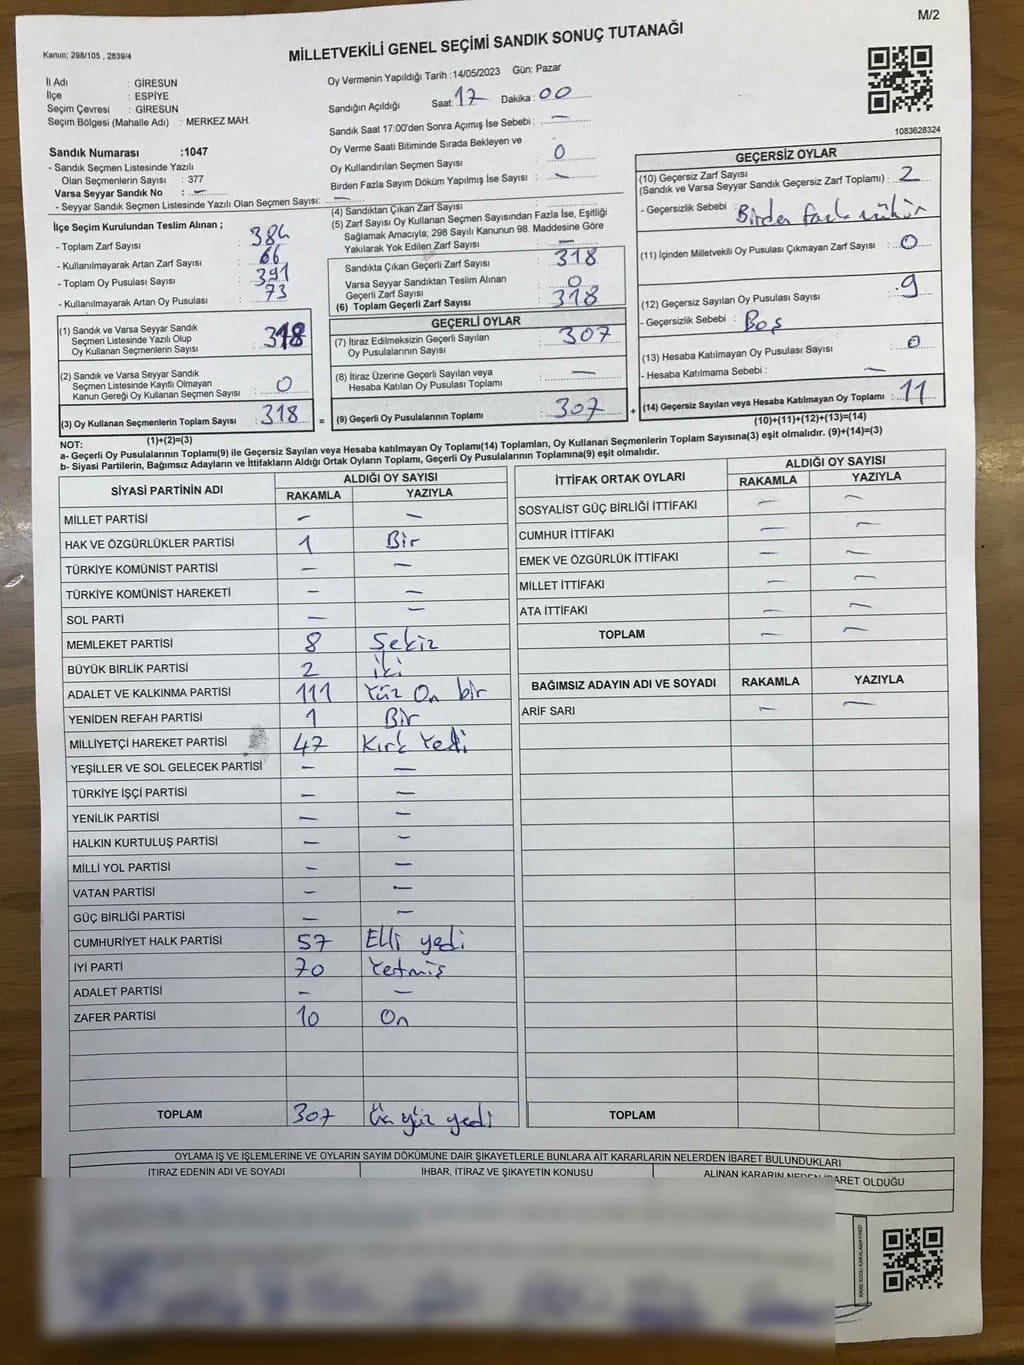 M/2
Kanun; 298/105 , 2839/4
MİLLETVEKİLİ GENEL SEÇİMİ SANDIK SONUÇ TUTANAĞI
İl Adı : GİRESUN
İlçe : ESPİYE
Seçim Çevresi : GİRESUN
Seçim Bölgesi (Mahalle Adı) : MERKEZ MAH.
Oy Vermenin Yapıldığı Tarih :14/05/2023 Gün: Pazar
Sandığın Açıldığı Saat: 17 Dakika : 00
Sandık Saat 17:00'den Sonra Açımış İse Sebebi : —
Oy Verme Saati Bitiminde Sırada Bekleyen ve
Oy Kullandırılan Seçmen Sayısı : 0
Birden Fazla Sayım Döküm Yapılmış İse Sayısı : —
1083628324
Sandık Numarası :1047
- Sandık Seçmen Listesinde Yazılı
Olan Seçmenlerin Sayısı : 377
Varsa Seyyar Sandık No : —
- Seyyar Sandık Seçmen Listesinde Yazılı Olan Seçmen Sayısı: —
İlçe Seçim Kurulundan Teslim Alınan :
- Toplam Zarf Sayısı : 384
- Kullanılmayarak Artan Zarf Sayısı : 66
- Toplam Oy Pusulası Sayısı : 391
- Kullanılmayarak Artan Oy Pusulası : 73
(1) Sandık ve Varsa Seyyar Sandık
Seçmen Listesinde Yazılı Olup
Oy Kullanan Seçmenlerin Sayısı : 318
(2) Sandık ve Varsa Seyyar Sandık
Seçmen Listesinde Kayıtlı Olmayan
Kanun Gereği Oy Kullanan Seçmen Sayısı : 0
(3) Oy Kullanan Seçmenlerin Toplam Sayısı : 318 =
(1)+(2)=(3)
(4) Sandıktan Çıkan Zarf Sayısı
(5) Zarf Sayısı Oy Kullanan Seçmen Sayısından Fazla İse, Eşitliği
Sağlamak Amacıyla; 298 Sayılı Kanunun 98. Maddesine Göre
Yakılarak Yok Edilen Zarf Sayısı : —
Sandıkta Çıkan Geçerli Zarf Sayısı : 318
Varsa Seyyar Sandıktan Teslim Alınan
Geçerli Zarf Sayısı : 0
(6) Toplam Geçerli Zarf Sayısı : 318
GEÇERLİ OYLAR
(7) İtiraz Edilmeksizin Geçerli Sayılan
Oy Pusulalarının Sayısı : 307
(8) İtiraz Üzerine Geçerli Sayılan veya
Hesaba Katılan Oy Pusulası Toplamı : —
(9) Geçerli Oy Pusulalarının Toplamı : 307 +
GEÇERSİZ OYLAR
(10) Geçersiz Zarf Sayısı
(Sandık ve Varsa Seyyar Sandık Geçersiz Zarf Toplamı) : 2
- Geçersizlik Sebebi : Birden fazla mühür
(11) İçinden Milletvekili Oy Pusulası Çıkmayan Zarf Sayısı : 0
(12) Geçersiz Sayılan Oy Pusulası Sayısı : 9
- Geçersizlik Sebebi : Boş
(13) Hesaba Katılmayan Oy Pusulası Sayısı : 0
- Hesaba Katılmama Sebebi : —
(14) Geçersiz Sayılan veya Hesaba Katılmayan Oy Toplamı : 11
(10)+(11)+(12)+(13)=(14)
NOT:
a- Geçerli Oy Pusulalarının Toplamı(9) ile Geçersiz Sayılan veya Hesaba katılmayan Oy Toplamı(14) Toplamları, Oy Kullanan Seçmenlerin Toplam Sayısına(3) eşit olmalıdır. (9)+(14)=(3)
b- Siyasi Partilerin, Bağımsız Adayların ve İttifakların Aldığı Ortak Oyların Toplamı, Geçerli Oy Pusulalarının Toplamına(9) eşit olmalıdır.
SİYASİ PARTİNİN ADI ALDIĞI OY SAYISI
RAKAMLA YAZIYLA
MİLLET PARTİSİ — —
HAK VE ÖZGÜRLÜKLER PARTİSİ 1 Bir
TÜRKİYE KOMÜNİST PARTİSİ — —
TÜRKİYE KOMÜNİST HAREKETİ — —
SOL PARTİ — —
MEMLEKET PARTİSİ 8 Sekiz
BÜYÜK BİRLİK PARTİSİ 2 İki
ADALET VE KALKINMA PARTİSİ 111 Yüz On bir
YENİDEN REFAH PARTİSİ 1 Bir
MİLLİYETÇİ HAREKET PARTİSİ 47 Kırk Yedi
YEŞİLLER VE SOL GELECEK PARTİSİ — —
TÜRKİYE İŞÇİ PARTİSİ — —
YENİLİK PARTİSİ — —
HALKIN KURTULUŞ PARTİSİ — —
MİLLİ YOL PARTİSİ — —
VATAN PARTİSİ — —
GÜÇ BİRLİĞİ PARTİSİ — —
CUMHURİYET HALK PARTİSİ 57 Elli yedi
İYİ PARTİ 70 Yetmiş
ADALET PARTİSİ — —
ZAFER PARTİSİ 10 On
TOPLAM 307 Üç yüz yedi
İTTİFAK ORTAK OYLARI ALDIĞI OY SAYISI
RAKAMLA YAZIYLA
SOSYALİST GÜÇ BİRLİĞİ İTTİFAKI — —
CUMHUR İTTİFAKI — —
EMEK VE ÖZGÜRLÜK İTTİFAKI — —
MİLLET İTTİFAKI — —
ATA İTTİFAKI — —
TOPLAM — —
BAĞIMSIZ ADAYIN ADI VE SOYADI RAKAMLA YAZIYLA
ARİF SARI — —
TOPLAM
OYLAMA İŞ VE İŞLEMLERİNE VE OYLARIN SAYIM DÖKÜMÜNE DAİR ŞİKAYETLERLE BUNLARA AİT KARARLARIN NELERDEN İBARET BULUNDUKLARI
İTİRAZ EDENİN ADI VE SOYADI İHBAR, İTİRAZ VE ŞİKAYETİN KONUSU ALINAN KARARIN NEDEN İBARET OLDUĞU
KARE KODU KARALAMAYINIZ!